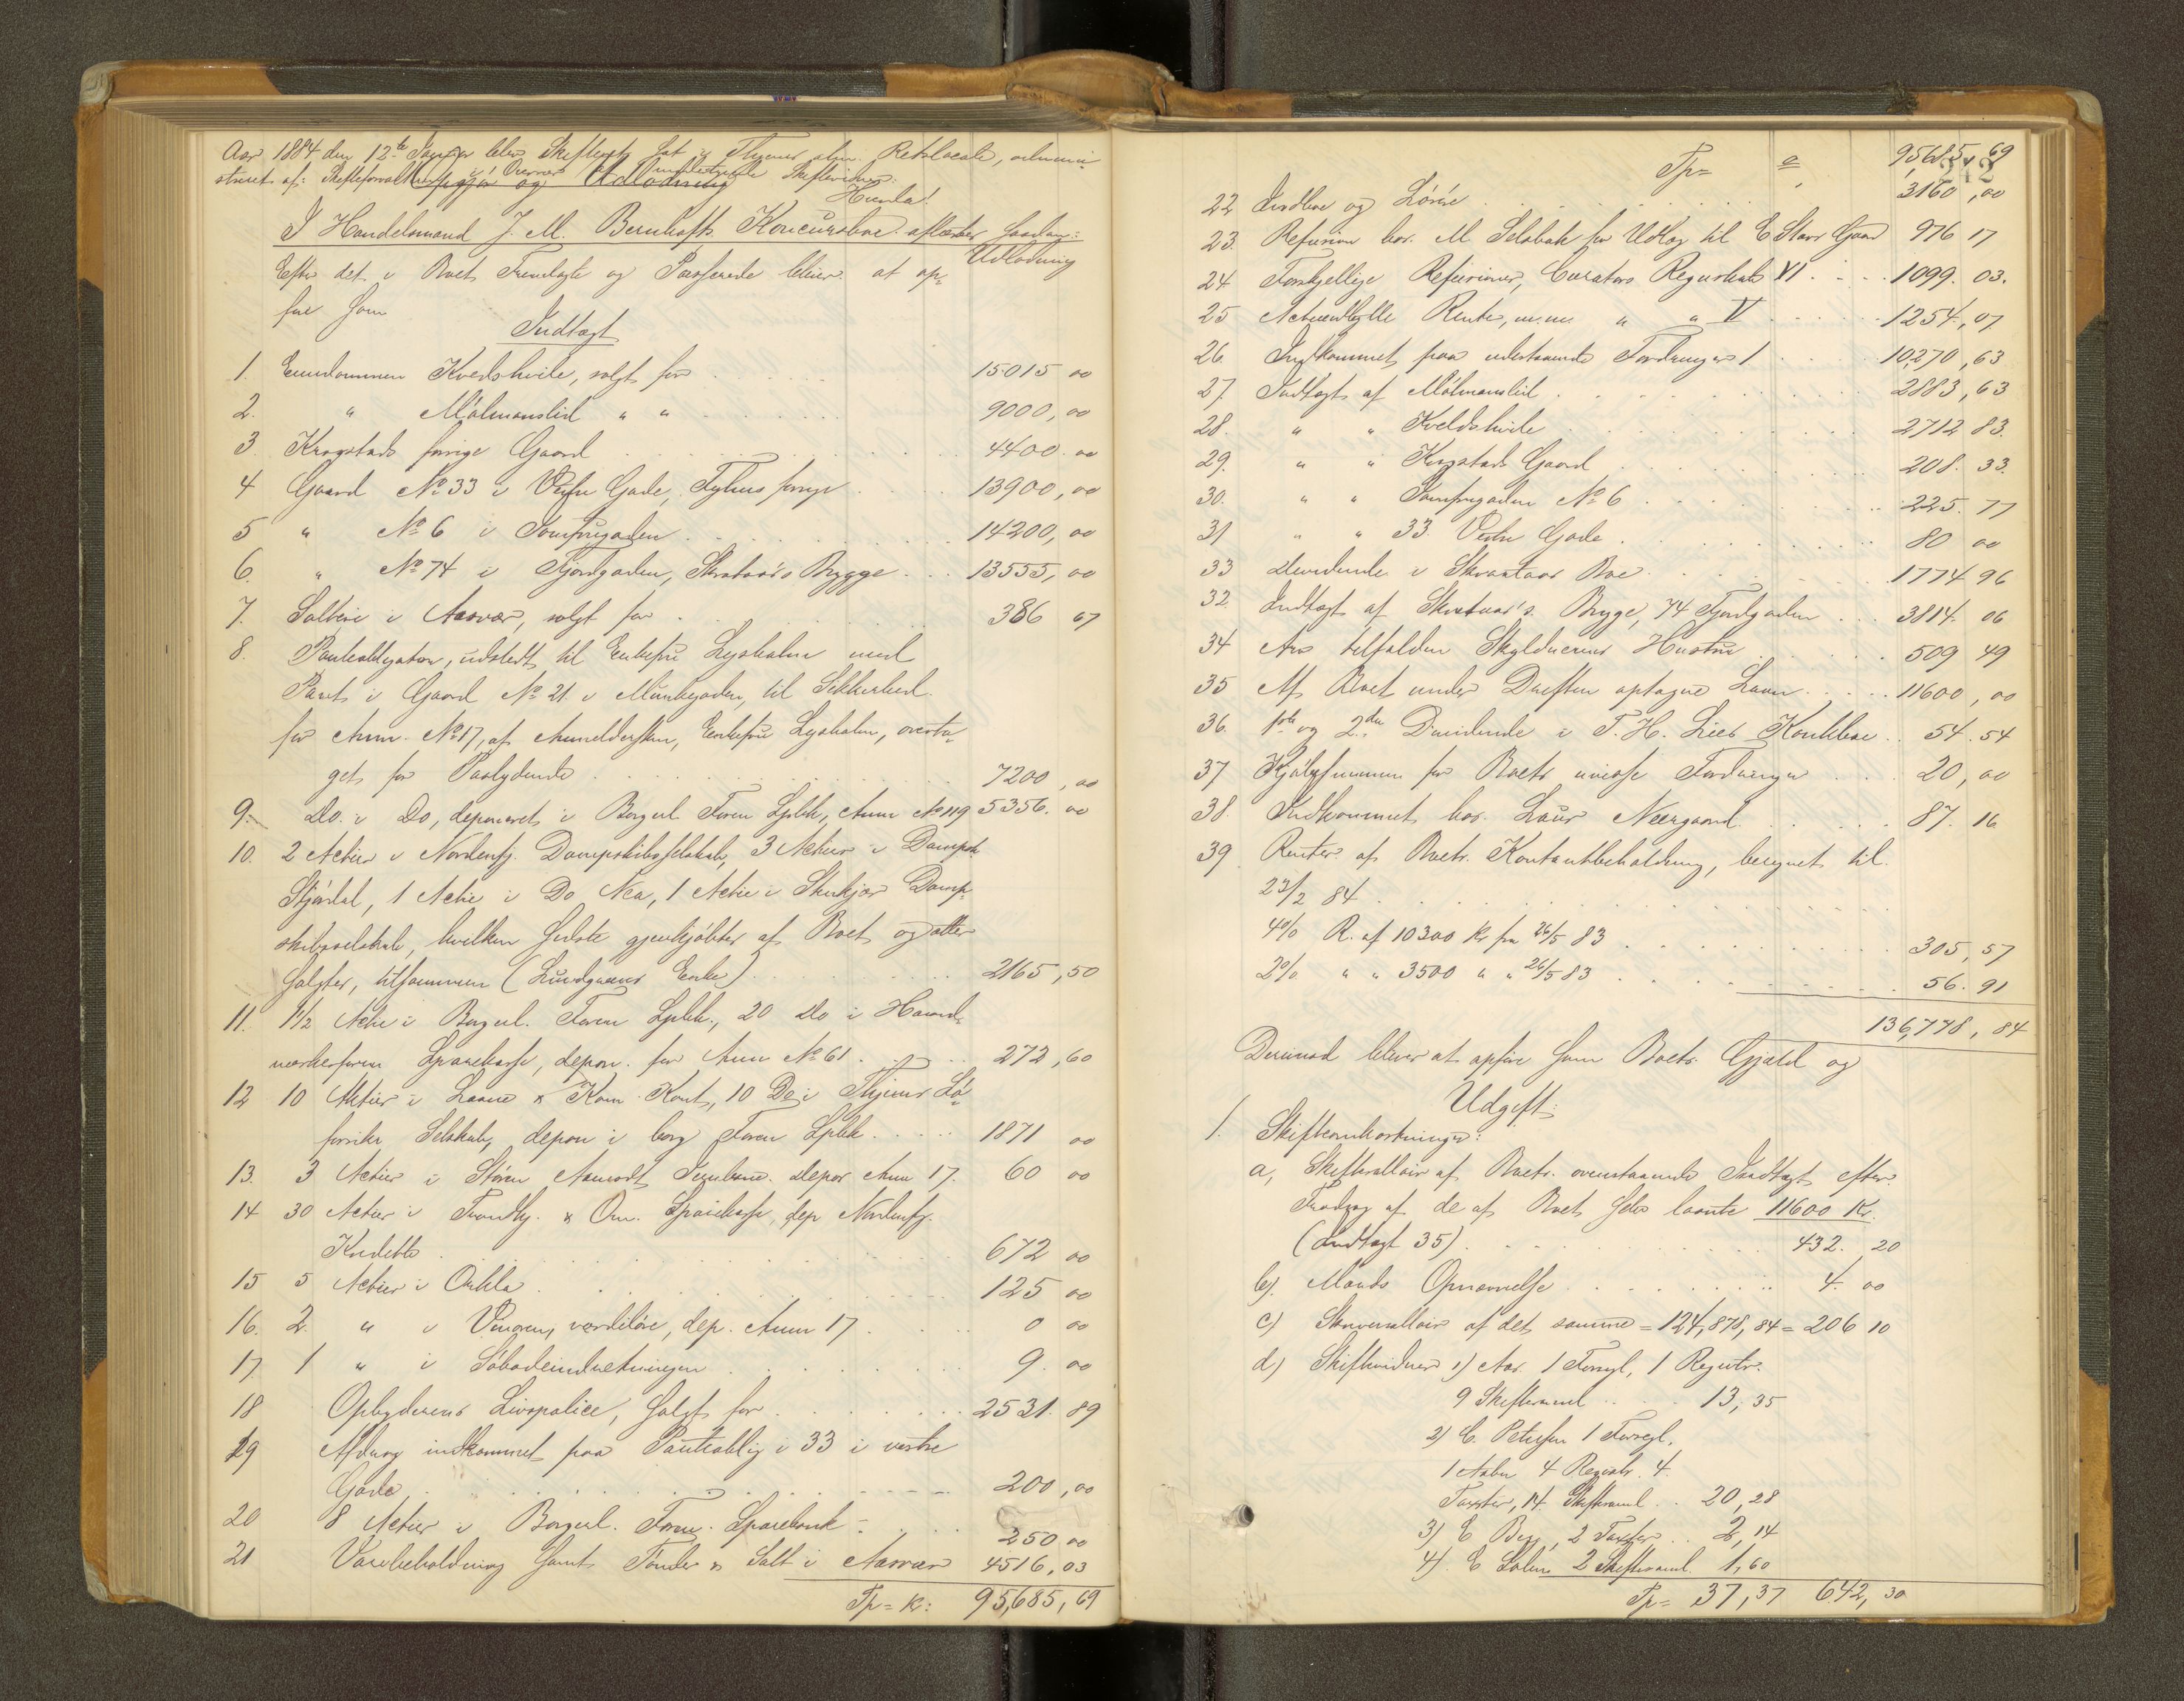 Aar 1884 den 12te Januar blev Skifteret sat i Thjems alm. Retslocale, admini-
streret af: Skifteforvalter i Overvær Undertegnede Skiftevidner.
Opgjør og Udlodning
I Handelsmand J. M. Bernhofts Koncursboe afslørtes saadan:
Udlodning
Efter det i Boet Fremlagte og Passerede bliver at op-
føre som
Indtægt
1. Eiendommen Kvedshvile, solgt for 15015 00
2. " Målmanslid " " 9000,00
3. Krogstads forrige Gaard 4400.00
4 Gaard No 33 i Vestre Gade, forrige 13900,00
5 " No 6 i Jomfrugaden 14200,00
6. " No 74 i Fjordgaden, Skrataas's Brygge 13555,00
7. Salteri i Aasvær, solgt for 386 67
8. Panteobligation, udstedt til Enkefru Lysholm med
Pant i Gaard No 21 i Munkegaden, til Sikkerhed
for Anm. No 17, af Anmeldersken, Enkefru Lysholm, overta-
get for Paalydende 7200,00
9. Do. i Do, deponeret i Borgerl. Foren Spbk, Anm No 119 5356.00
10. 2 Actier i Nordenfj. Dampskibsselskab, 3 Actier i Dampsk.
Stjørdal, 1 Actie i Do Nea, 1 Actie i Stenkjær Damp-
skibsselskab, hvilken sidste gjenkjøbtes af Boet og atter
solgtes, tilsammen (Lundgreens Enke) 2165,50
11. 1 1/2 Actie i Borgerl. Foren Spbk., 20 Do i Haand-
værkerforen Sparekasse, depon. for Anm No 61 272,60
12 10 Actier i Laane & Kom. Kont, 10 Do i Thjems Sø-
forsikr Selskab, depon i borg Foren Spbk 1871 00
13. 3 Actier i Støren Aamodt Jernbane depor Anm 17. 60 00
14 30 Actier i Trondhj. & Om. Sparekasse, dep Nordenfj.
Kreditb 672 00
15 5 Actier i Orkla 125 00
16. 2 " i værdiløse, dep. Anm 17 0 00
17 1 " i Søbadeindretningen 9.00
18 Opbyderens Livspolice, solgt for 2531.89
19 Afdrag indkommet paa Panteoblig i 33 i vestre
Gade 200,00
20 8 Actier i Borgerl. Foren. Sparebank 250 00
21 Varebeholdning samt Tønder & Salt i Aasvær 4516,03
Tp = Kr: 95,685,69
Tp= 95685,69
22 Indboe og Løsøre 3160,00
23 Refusion hos M. Selsbak for Udlæg til E Stavs Gaard 976 17
24 Forskjellige Refusioner, Curators Regnskab VI 1099.03.
25 Actieudbytte Renter, m.m. " " V 1254,07
26. Indkommet paa udestaaende Fordringer I 10270,63
27. Indtægt af Målmanslid 2883,63
28. " " Kveldshvile 2712 83.
29. " " Krogstads Gaard 208.33.
30. " " Jomfrugaden No 6 225.77
31 " " 33 Vestre Gade 80 00
33 Dividende i Skraataas Boe 1774 96
32. Indtægt af Skrataas's Brygge, 74 Fjordgaden 3814.06
34 Arv tilfalden Skyldnerens Hustru 509 49
35 Af Boet under Driften optagne Laan 11600,00
36. 1ste og 2den Dividende i T. H. Lies Konkboe 54.54
37 Kjøbesummen for Boets uvisse Fordringer 20,00
38. Indkommet hos Laur Neergaard 87.16
39 Renter af Boets Kontantbeholdning, beregnet til
23/2 84
4% R. af 10300 Kr fra 26/5 83 305,57
2% " " 3500 " " 26/5 83 56.91
136,778,84
Derimod bliver at opføre som Boets Gjæld og
Udgift:
1. Skifteomkostninger:
a, Skiftesallair af Boets ovenstaaende Indtægt efter
Fradrag af de af Boet selv laante 11600 Kr.
(Indtægt 35) 432.20
b). Mænds Opnævnelse 4.00
c) Skriversallair af det samme = 124,878,84 = 206 10
d) Skiftevidner 1) Aas. 1 Forsegl, 1 Registr.
9 Skiftesaml 13,35
2) C. Petersen 1 Forsegl.
1 Aabn 4 Registr. 4
Taxter, 14 Skiftesaml 20,28
3) E Berg, 2 Taxter 2,14
4) E Solem 2 Skiftesaml 1,60
Tp= 37,37 642,30